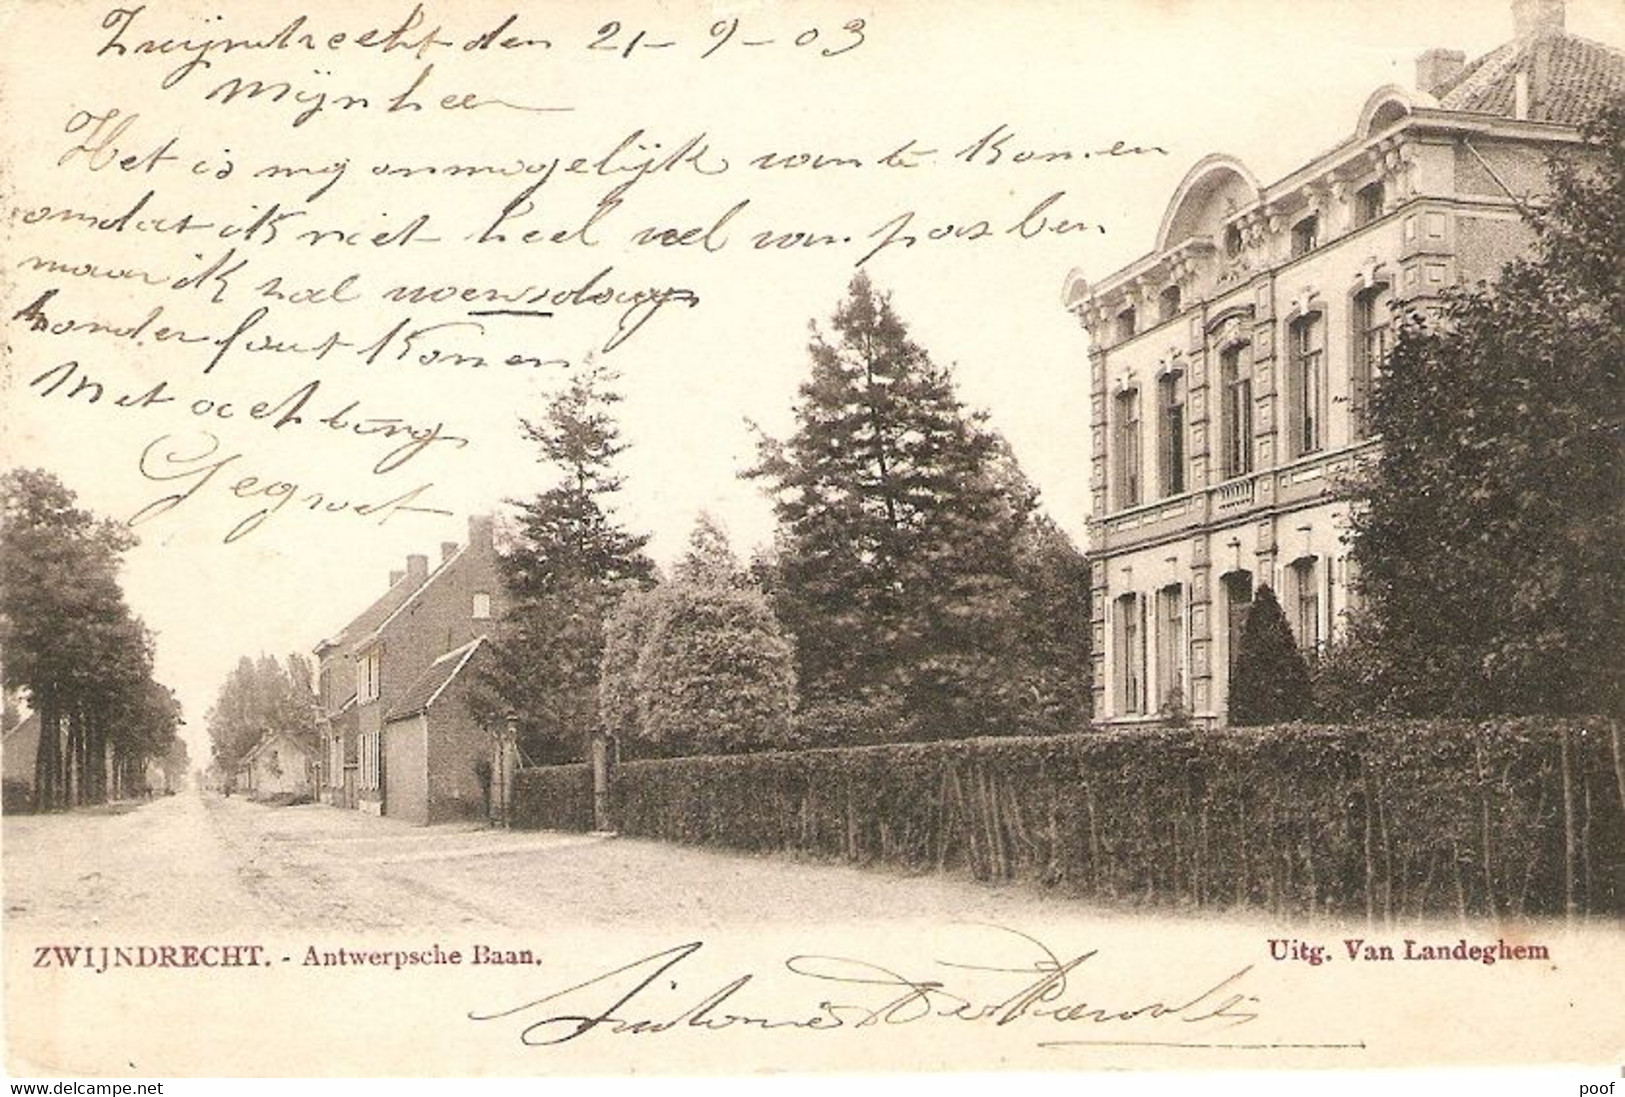 Zwijndrecht den 21-9-03
Mijnheer
Het is mij onmogelijk van te komen
omdat ik niet heel wel van pas ben
maar ik zal woensdag
zonder fout komen
Met achting
Gegroet
ZWIJNDRECHT. - Antwerpsche Baan.
Uitg. Van Landeghem
www.delcampe.net
poof